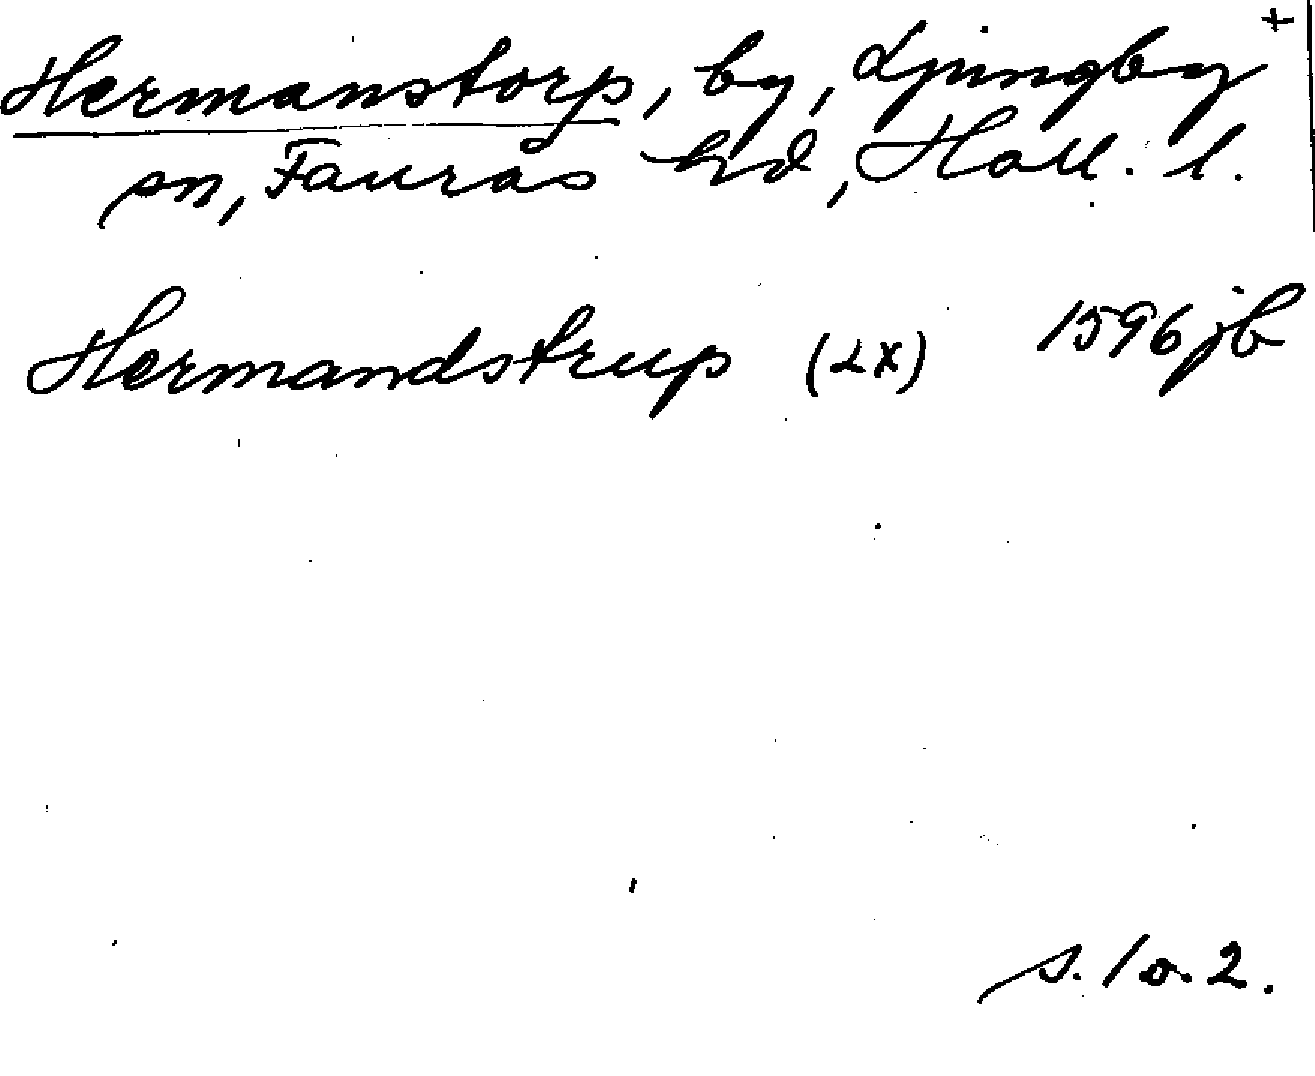 Hermanstorp, by, Ljungby +
sn, Fauras hd, Hall. l.
Hermandstrup (2x) 1596 jb
s. 1 o. 2.